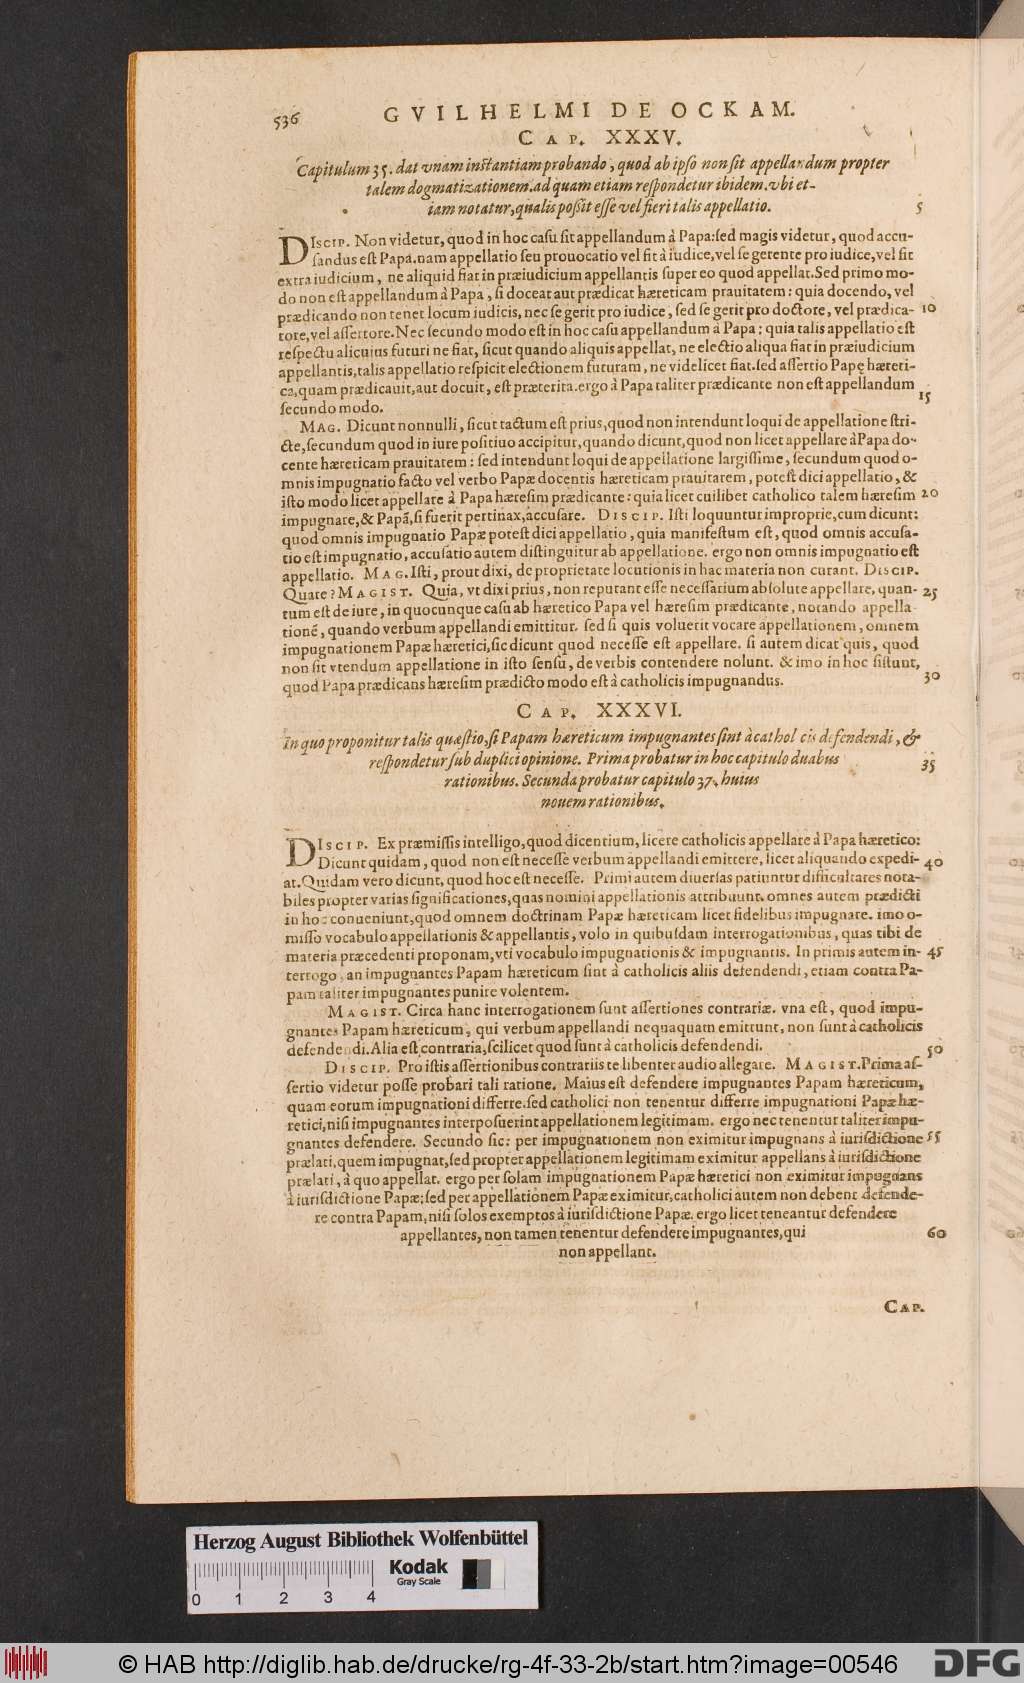 536
GVILHELMI DE OCKAM.
CAP. XXXV.
Capitulum 35. dat vnam instantiam probando, quod ab ipso non sit appellandum propter
talem dogmatizationem. ad quam etiam respondetur ibidem. vbi et-
iam notatur, qualis possit esse vel fieri talis appellatio. 5
DISCIP. Non videtur, quod in hoc casu sit appellandum à Papa: sed magis videtur, quod accu-
sandus est Papa. nam appellatio seu prouocatio vel fit à iudice, vel se gerente pro iudice, vel fit
extra iudicium, ne aliquid fiat in præiudicium appellantis super eo quod appellat. Sed primo mo-
do non est appellandum à Papa, si doceat aut prædicat hæreticam prauitatem: quia docendo, vel
prædicando non tenet locum iudicis, nec se gerit pro iudice, sed se gerit pro doctore, vel prædica- 10
tore, vel assertore. Nec secundo modo est in hoc casu appellandum à Papa: quia talis appellatio est
respectu alicuius futuri ne fiat, sicut quando aliquis appellat, ne electio aliqua fiat in præiudicium
appellantis, talis appellatio respicit electionem futuram, ne videlicet fiat. sed assertio Papę hæreti-
ca, quam prædicauit, aut docuit, est præterita. ergo à Papa taliter prædicante non est appellandum
secundo modo. 15
MAG. Dicunt nonnulli, sicut tactum est prius, quod non intendunt loqui de appellatione stri-
cte, secundum quod in iure positiuo accipitur, quando dicunt, quod non licet appellare à Papa do-
cente hæreticam prauitatem: sed intendunt loqui de appellatione largissime, secundum quod o-
mnis impugnatio facto vel verbo Papæ docentis hæreticam prauitatem, potest dici appellatio, &
isto modo licet appellare à Papa hæresim prædicante: quia licet cuilibet catholico talem hæresim 20
impugnare, & Papã, si fuerit pertinax, accusare. DISCIP. Isti loquuntur improprie, cum dicunt:
quod omnis impugnatio Papæ potest dici appellatio, quia manifestum est, quod omnis accusa-
tio est impugnatio, accusatio autem distinguitur ab appellatione. ergo non omnis impugnatio est
appellatio. MAG. Isti, prout dixi, de proprietate locutionis in hac materia non curant. DISCIP.
Quare? MAGIST. Quia, vt dixi prius, non reputant esse necessarium absolute appellare, quan- 25
tum est de iure, in quocunque casu ab hæretico Papa vel hæresim prædicante, notando appella-
tionẽ, quando verbum appellandi emittitur. sed si quis voluerit vocare appellationem, omnem
impugnationem Papæ hæretici, sic dicunt quod necesse est appellare. si autem dicat quis, quod
non sit vtendum appellatione in isto sensu, de verbis contendere nolunt. & imo in hoc sistunt,
quod Papa prædicans hæresim prædicto modo est à catholicis impugnandus. 30
CAP. XXXVI.
In quo proponitur talis quæstio, si Papam hæreticum impugnantes sint à cathol cis defendendi, &
respondetur sub duplici opinione. Prima probatur in hoc capitulo duabus 35
rationibus. Secunda probatur capitulo 37. huius
nouem rationibus.
DISCIP. Ex præmissis intelligo, quod dicentium, licere catholicis appellare à Papa hæretico:
Dicunt quidam, quod non est necesse verbum appellandi emittere, licet aliquando expedi- 40
at. Quidam vero dicunt, quod hoc est necesse. Primi autem diuersas patiuntur difficultates nota-
biles propter varias significationes, quas nomini appellationis attribuunt. omnes autem prædicti
in hoc conueniunt, quod omnem doctrinam Papæ hæreticam licet fidelibus impugnare. imo o-
misso vocabulo appellationis & appellantis, volo in quibusdam interrogationibus, quas tibi de
materia præcedenti proponam, vti vocabulo impugnationis & impugnantis. In primis autem in- 45
terrogo, an impugnantes Papam hæreticum sint à catholicis aliis defendendi, etiam contra Pa-
pam taliter impugnantes punire volentem.
MAGIST. Circa hanc interrogationem sunt assertiones contrariæ. vna est, quod impu-
gnantes Papam hæreticum, qui verbum appellandi nequaquam emittunt, non sunt à catholicis
defendendi. Alia est contraria, scilicet quod sunt à catholicis defendendi. 50
DISCIP. Pro istis assertionibus contrariis te libenter audio allegare. MAGIST. Prima as-
sertio videtur posse probari tali ratione. Maius est defendere impugnantes Papam hæreticum,
quam eorum impugnationi differre. sed catholici non tenentur differre impugnationi Papæ hæ-
retici, nisi impugnantes interposuerint appellationem legitimam. ergo nec tenentur taliter impu-
gnantes defendere. Secundo sic: per impugnationem non eximitur impugnans à iurisdictione 55
prælati, quem impugnat, sed propter appellationem legitimam eximitur appellans à iurisdictione
prælati, à quo appellat. ergo per solam impugnationem Papæ hæretici non eximitur impugnans
à iurisdictione Papæ; sed per appellationem Papæ eximitur, catholici autem non debent defende-
re contra Papam, nisi solos exemptos à iurisdictione Papæ. ergo licet teneantur defendere
appellantes, non tamen tenentur defendere impugnantes, qui 60
non appellant.
CAP.
Herzog August Bibliothek Wolfenbüttel
Kodak
Gray Scale
0 1 2 3 4
© HAB http://diglib.hab.de/drucke/rg-4f-33-2b/start.htm?image=00546
DFG